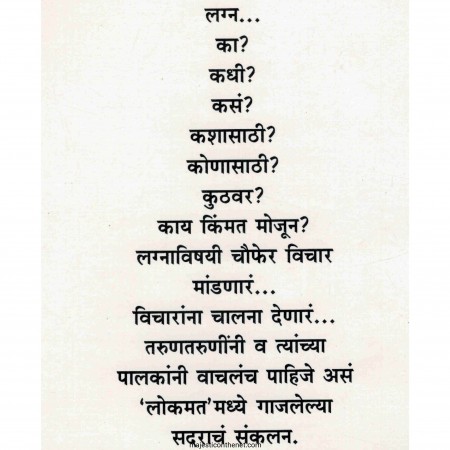 लग्न...
का?
कधी?
कसं?
कशासाठी?
कोणासाठी?
कुठवर?
काय किंमत मोजून?
लग्नाविषयी चौफेर विचार
मांडणारं...
विचारांना चालना देणारं...
तरुणतरुणींनी व त्यांच्या
पालकांनी वाचलंच पाहिजे असं
‘लोकमत’मध्ये गाजलेल्या
सदराचं संकलन.
majesticonthenet.com